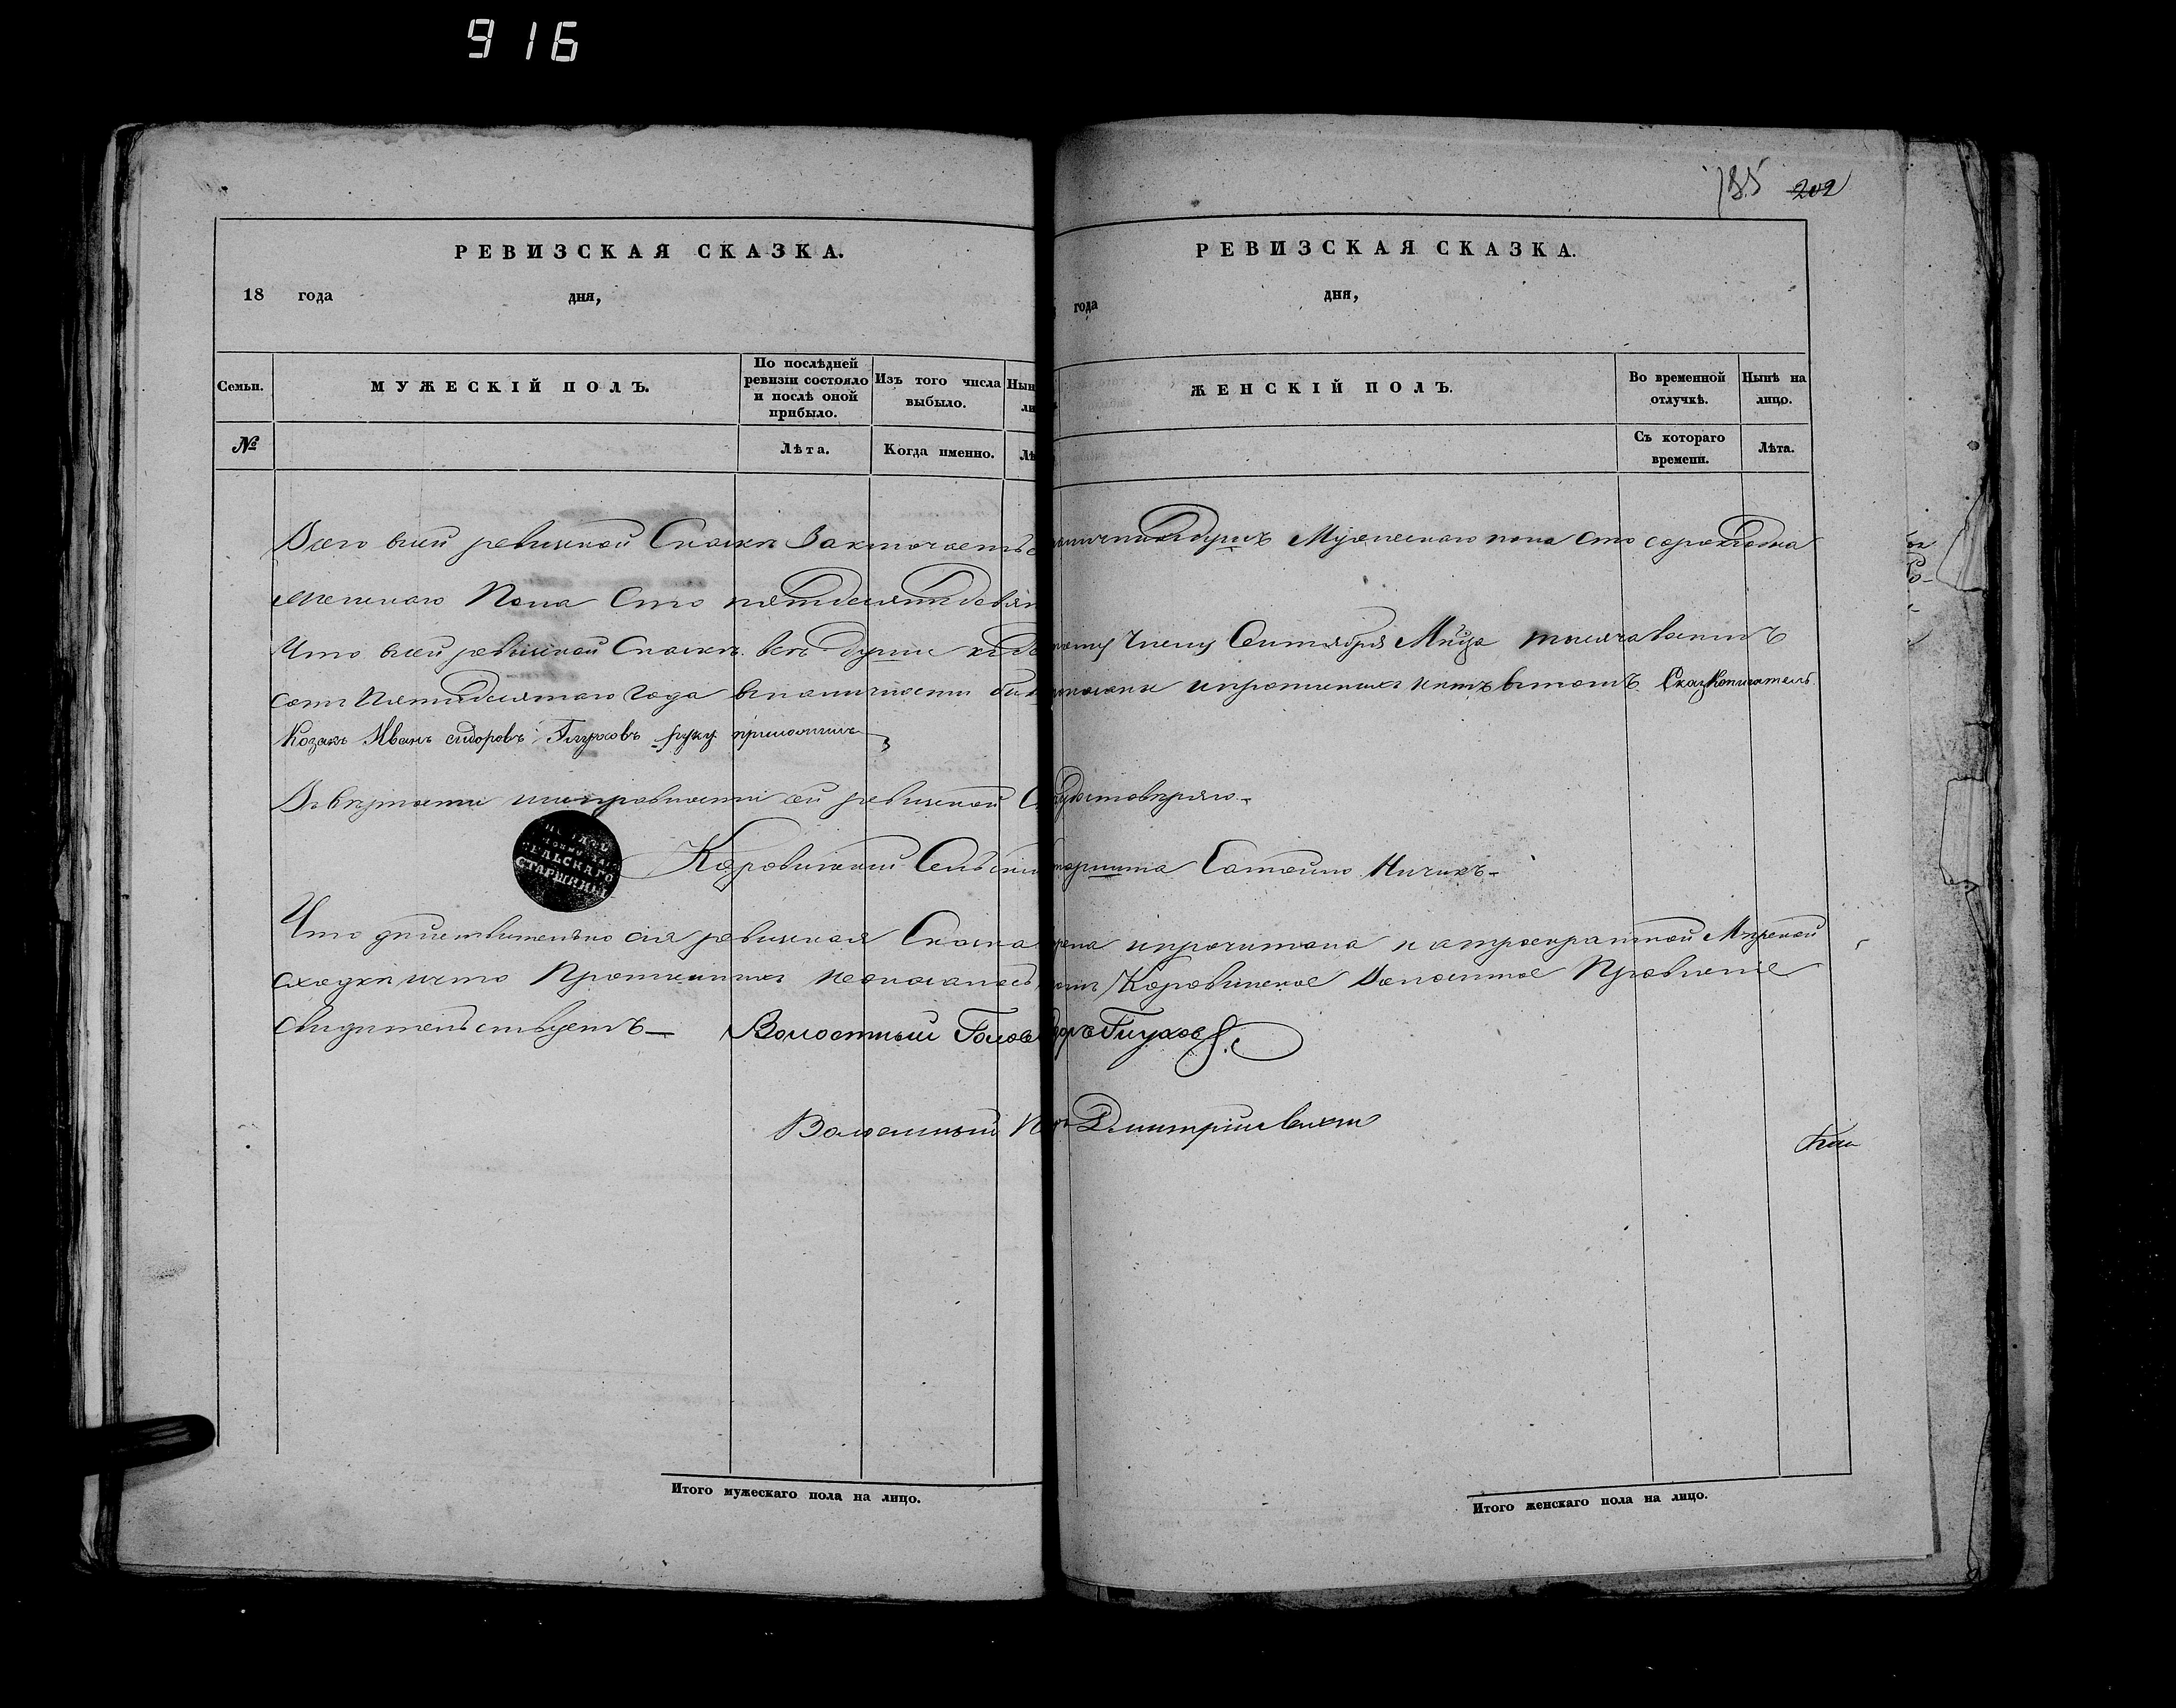 916
135 202
РЕВИЗСКАЯ СКАЗКА.
18 года дня,
Семьи.
МУЖЕСКІЙ ПОЛЪ.
По послѣдней ревизіи состояло и послѣ оной прибыло.
Изъ того числа выбыло.
Нын
ли
№
Лѣта.
Когда именно.
Лѣ
РЕВИЗСКАЯ СКАЗКА.
года дня,
ЖЕНСКІЙ ПОЛЪ.
Во временной отлучкѣ.
Нынѣ на лицо.
Съ котораго времени.
Лѣта.
Всего всей ревизской Сказкѣ Заключаетьс душъ Мужескаго пола сто сорокъ
женскаго Пола Сто пятдесятъ девят
Что въсей ревизской Сказкѣ всѣ души Числу Сентября Мѣца тысяча восемъ
сотъ Пятидесятаго Года въ наличности показаны и прописныхъ нетъ въ томъ Сказкоподатель
Козакъ Иванъ сидоровъ Глуховъ руку приложилъ
Въ верности и исправности сей ревизской С удостоверяю
СЕЛЬСКАГО
СТАРШИНЫ
Коровинский Сельский таршина Ничикъ
Что действительно сія ревизская Сказка и прочитана на троекратной Мирской
сходке и что Прописныхъ неоказалось Коровинское Волостное Правленіе
свидѣтельствуетъ— Волостный Голов Глухов
Волостный П Дмитріевичъ
Итого мужескаго пола на лицо.
Итого женскаго пола на лицо.